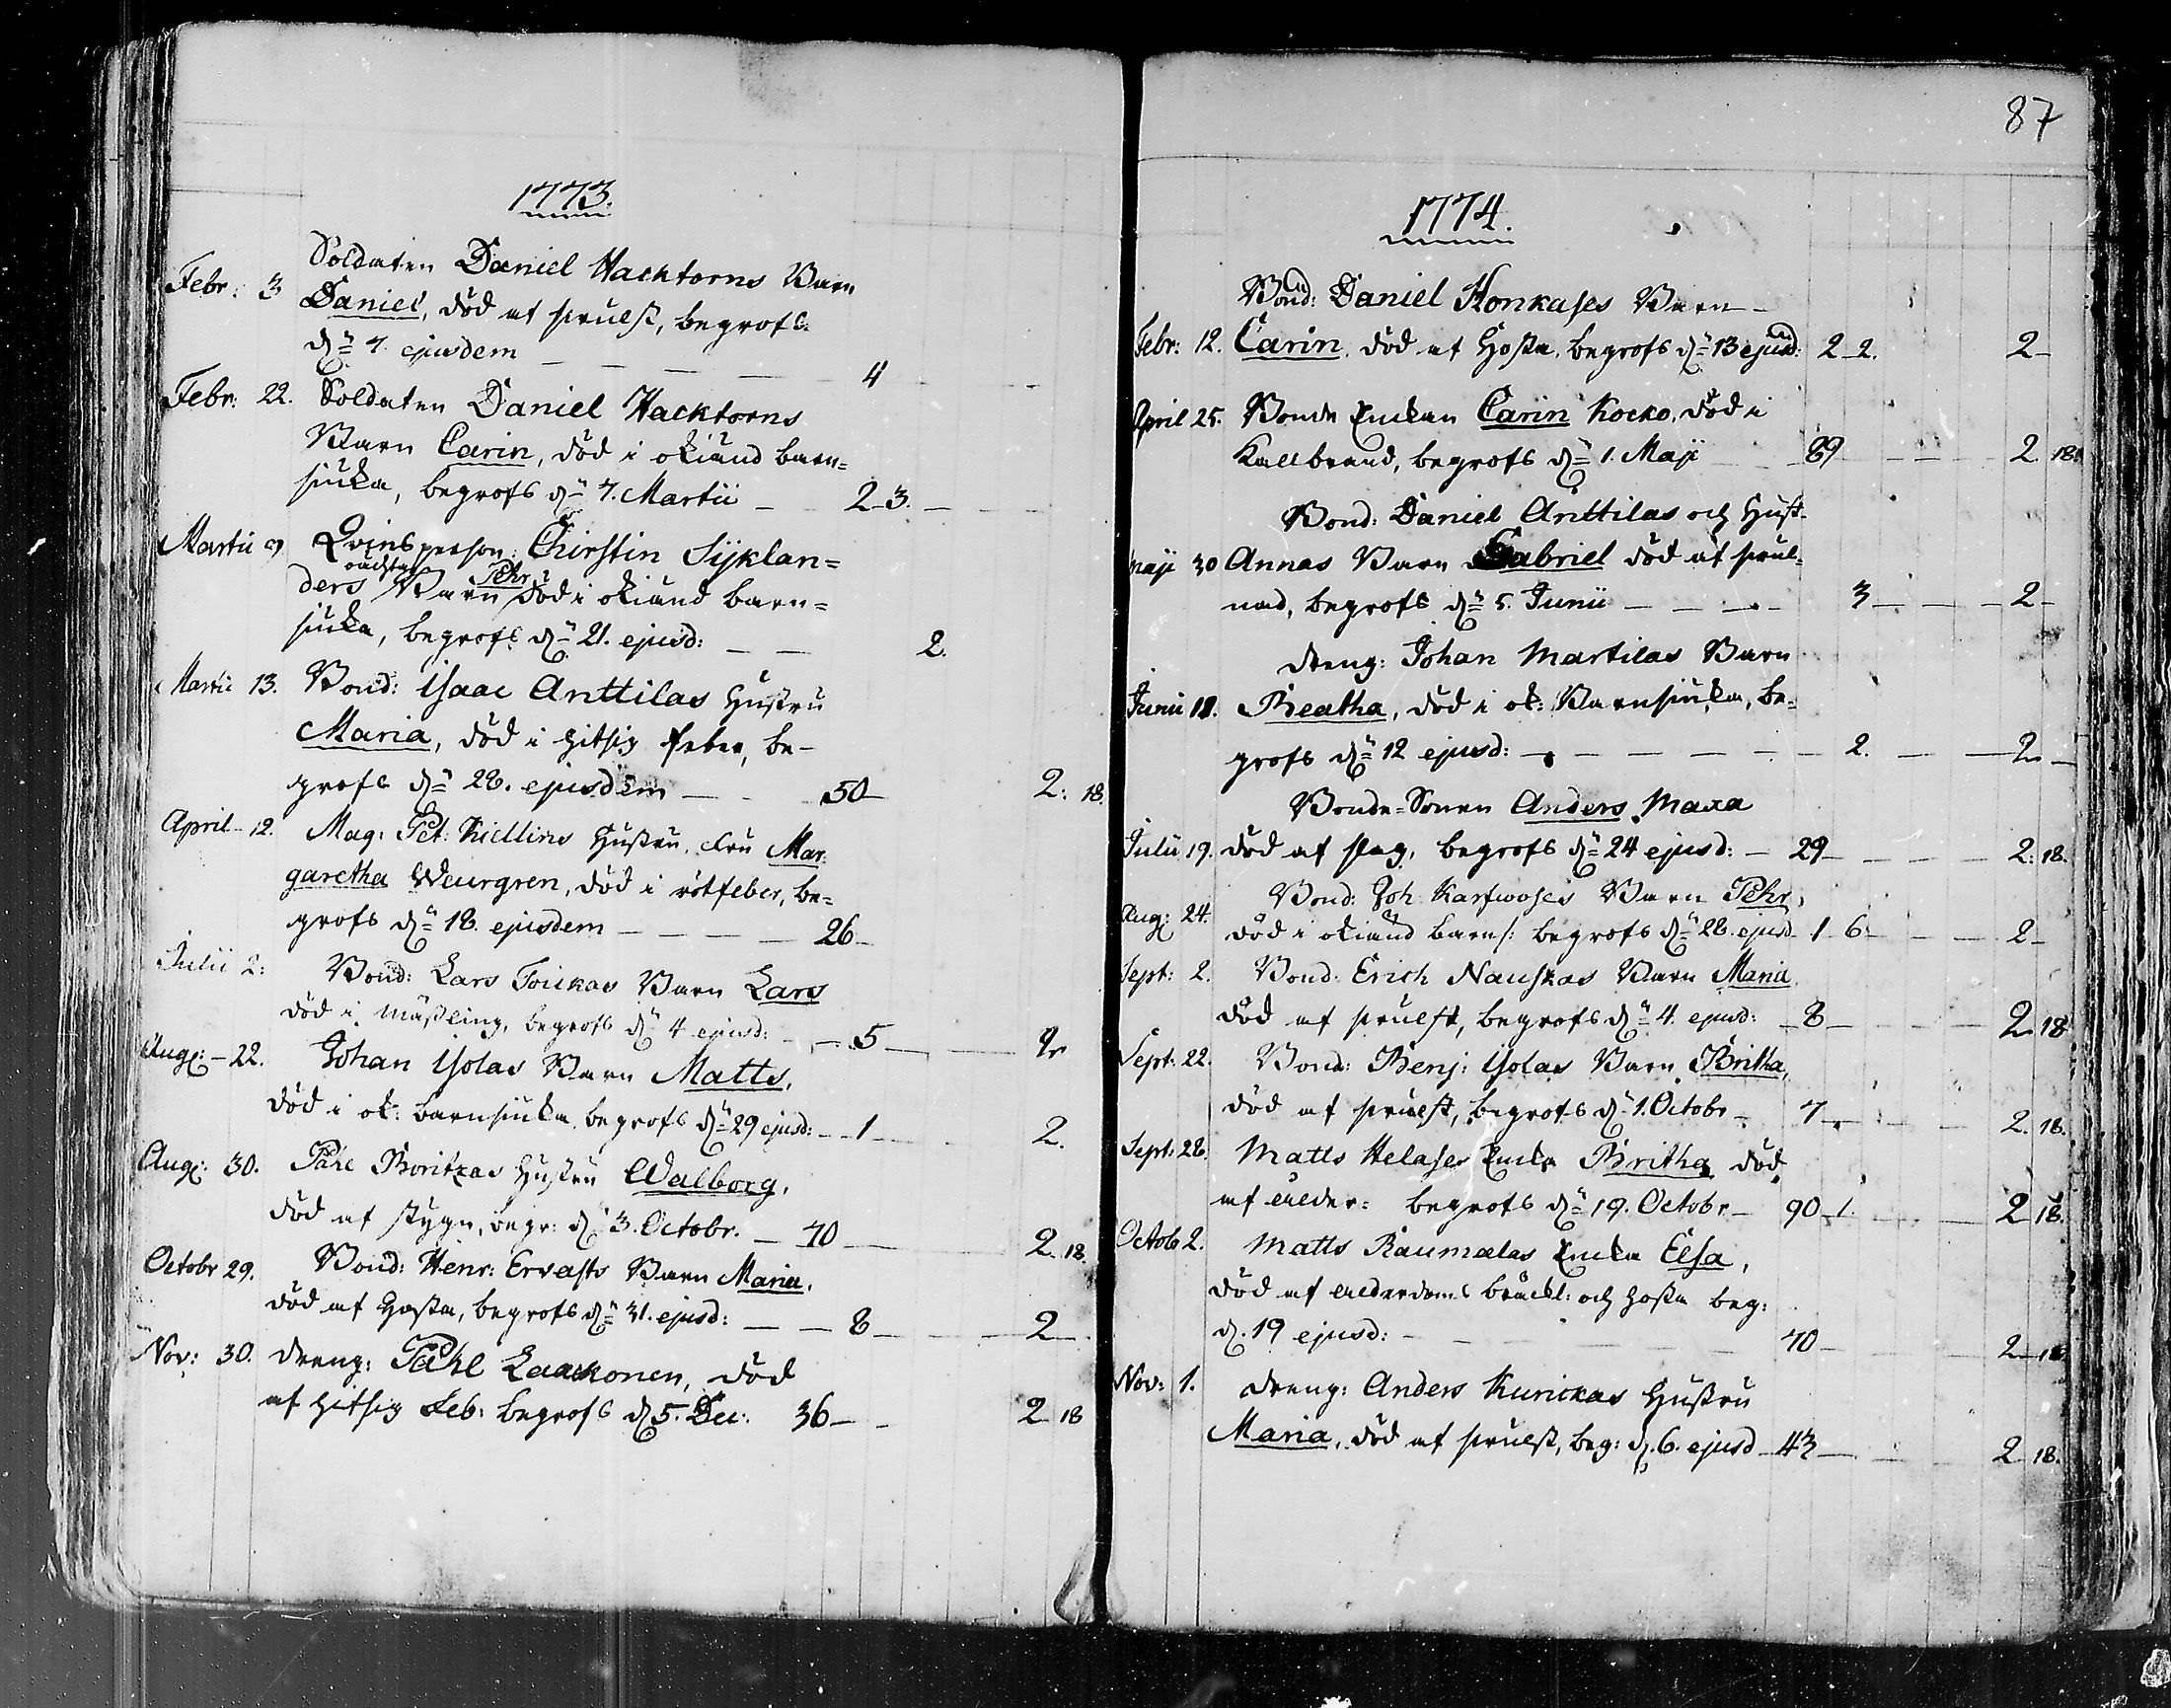 1773.
Soldaten Daniel Hacktorns Barn
Febr: 3 Daniel, död af swulst, begrofs
dn 7. ejusdem — — — — 4
Febr: 22. Soldaten Daniel Hacktorns
Barn Carin, död i okiänd barn=
siuka, begrofs dn 7. Martii — 2 3.
Martii 9 Qvinsperson: Chirstin Sijklan=
ders oächta Barn Pehr död i okiänd barn=
siuka, begrofs dn 21. ejusd: — — 2.
Martii 13. Bond: Isaac Anttilas Hustru
Maria, död i hitsig feber, be-
grofs dn 28. ejusdem — 50 2: 18.
April 12. Mag: Pet: Kiellins Hustru, Fru Mar
garetha Weurgren, död i rötfeber, be=
grofs dn 18. ejusdem — — — — 26
Julii 2: Bond: Lars Toickas Barn Lars
död i mäßling, begrofs dn 4 ejusd: — 5 — 2
Aug: 22. Johan Isolas Barn Matts,
död i ok: barnsiuka begrofs dn 29 ejusd: 1 — 2.
Aug: 30. Påhl Boritzas Hustru Walborg,
död af stygn, begr: dn 3. Octobr. — 70 — 2. 18.
Octobr 29. Bond: Henr: Ervasts Barn Maria,
död af Hosta, begrofs dn 31. ejusd: — — 8 — 2
Nov: 30. dreng: Påhl Laakkonen, död
af hitsig feb: begrofs d 5. Dec: 36 — 2 18
87
1774.
Bond: Daniel Honkases Barn
Febr: 12. Carin, död af Hosta, begrofs dn 13 ejusd: 2 2. 2
April 25. Bonde Enckan Carin Kocko, död i
Kallbrand, begrofs dn 1. Maji 89 — 2. 18.
Bond: Daniel Anttilas och Hust
Maji 30 Annas Barn Gabriel död af swul=
nad, begrofs dn 5. Junii — — — 3 — 2
dreng: Johan Martilas Barn
Junii 11. Beatha, död i ok: Barnsiuka, be=
grofs dn 12 ejusd: — — — — — 2. — 2
Bonde=Sonen Anders Maxa
Julii 19. död af slag, begrofs dn 24 ejusd: — 29 — 2: 18.
Bond: Joh: Karfwoses Barn Pehr,
Aug: 24. död i okiänd barns: begrofs dn 28. ejusd 1 6 — 2
Sept: 2. Bond: Erich Nauskas Barn Maria
död af swulst, begrofs dn 4. ejusd: 8 — 2. 18
Sept: 22. Bond: Benj: Isolas Barn Britha,
död af swulst, begrofs dn 1. Octobr — 7 — 2. 18.
Sept: 28. Matts Helases Encka Britha död
af ålder= begrofs dn 19. Octobr — 90 1. — 2 18.
Octob 2. Matts Raumalas Encka Elsa,
död af ålderdoms bräckl: och hosta beg:
d. 19 ejusd: — 70 — 2 18
Nov: 1. dreng: Anders Kurickas Hustru
Maria, död af swulst, beg: d. 6. ejusd 43 — 2 18.